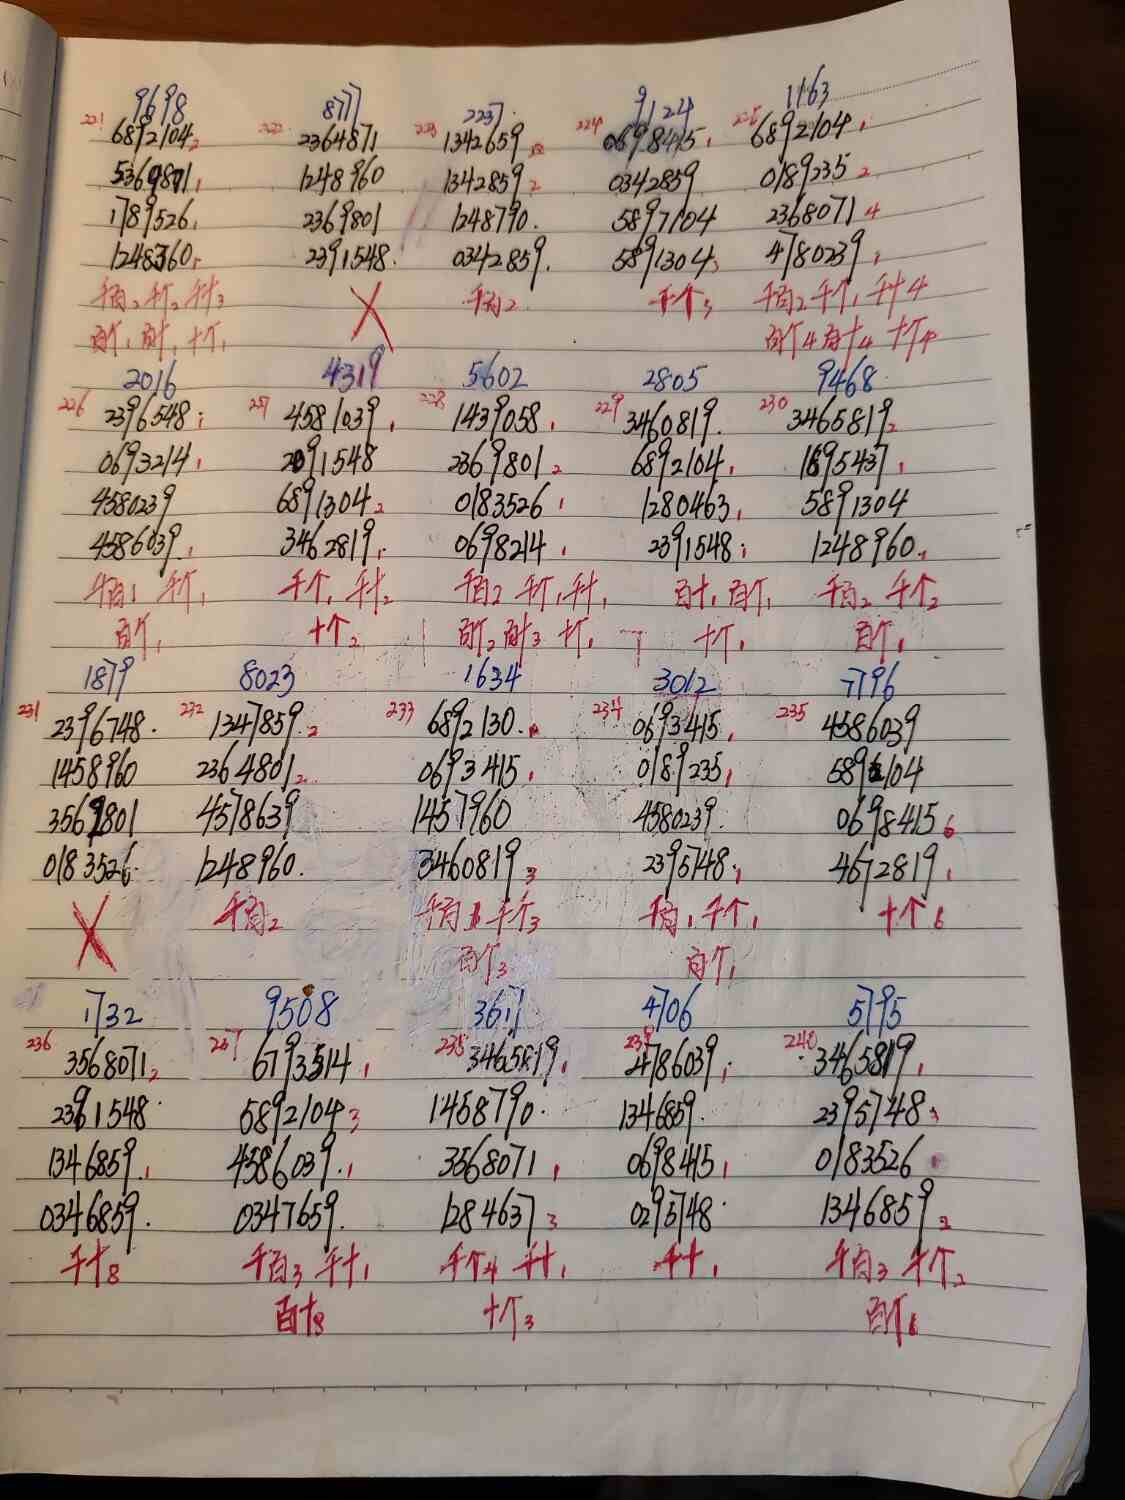 9698 8777 2237 9124 1163
221 6892104 2 222 2364871 223 1342659 224 0698415 1 225 6892104 1
5369871 1 1248960 1342859 2 0342859 0189235 2
1789526 2369801 1248790 5897104 2368071 4
1248360 2391548 0342859 5891304 3 4780239 1
千百2 千个2 千十3 X 千百2 千个3 千百2 千个1 千十4
百个1 百十1 十个1 百个4 百十4 十个4
2016 4319 5602 2805 9468
226 2396548 1 227 4581039 1 228 1439058 1 229 3460819 230 3465819 2
0693214 1 2091548 2369801 2 6892104 1 1695437 1
4580239 6891304 2 0183526 1 1280463 1 5891304
4586039 1 3462819 1 0698214 1 2391548 1 1248960 1
千百1 千个1 千个1 千十2 千百2 千个1 千十1 百十1 百个1 千百2 千个2
百个1 十个2 百个2 百十3 十个1 十个1 百个1
1879 8023 1634 3012 7796
231 2396748 232 1347859 2 233 6892130 234 0693415 1 235 4586039
1458960 2364801 2 0693415 1 0189235 1 5892104
3569801 4578639 1457960 4580239 0698415 6
0183526 1248960 3460819 3 2395748 1 4672819 1
X 千百2 千百1 千个3 千百1 千个1 十个6
百个3 百个1
1732 9508 3617 4706 5795
236 3568071 2 237 6793514 1 238 3465819 1 239 2786039 1 240 3465819 1
2391548 5892104 3 1458790 1346859 2395748 3
1346859 1 4586039 1 3568071 1 0698415 1 0183526
0346859 0347659 1284637 3 0295748 1346859 2
千十8 千百3 千十1 千个4 千十1 千十1 千百3 千个2
百十8 十个3 百个6